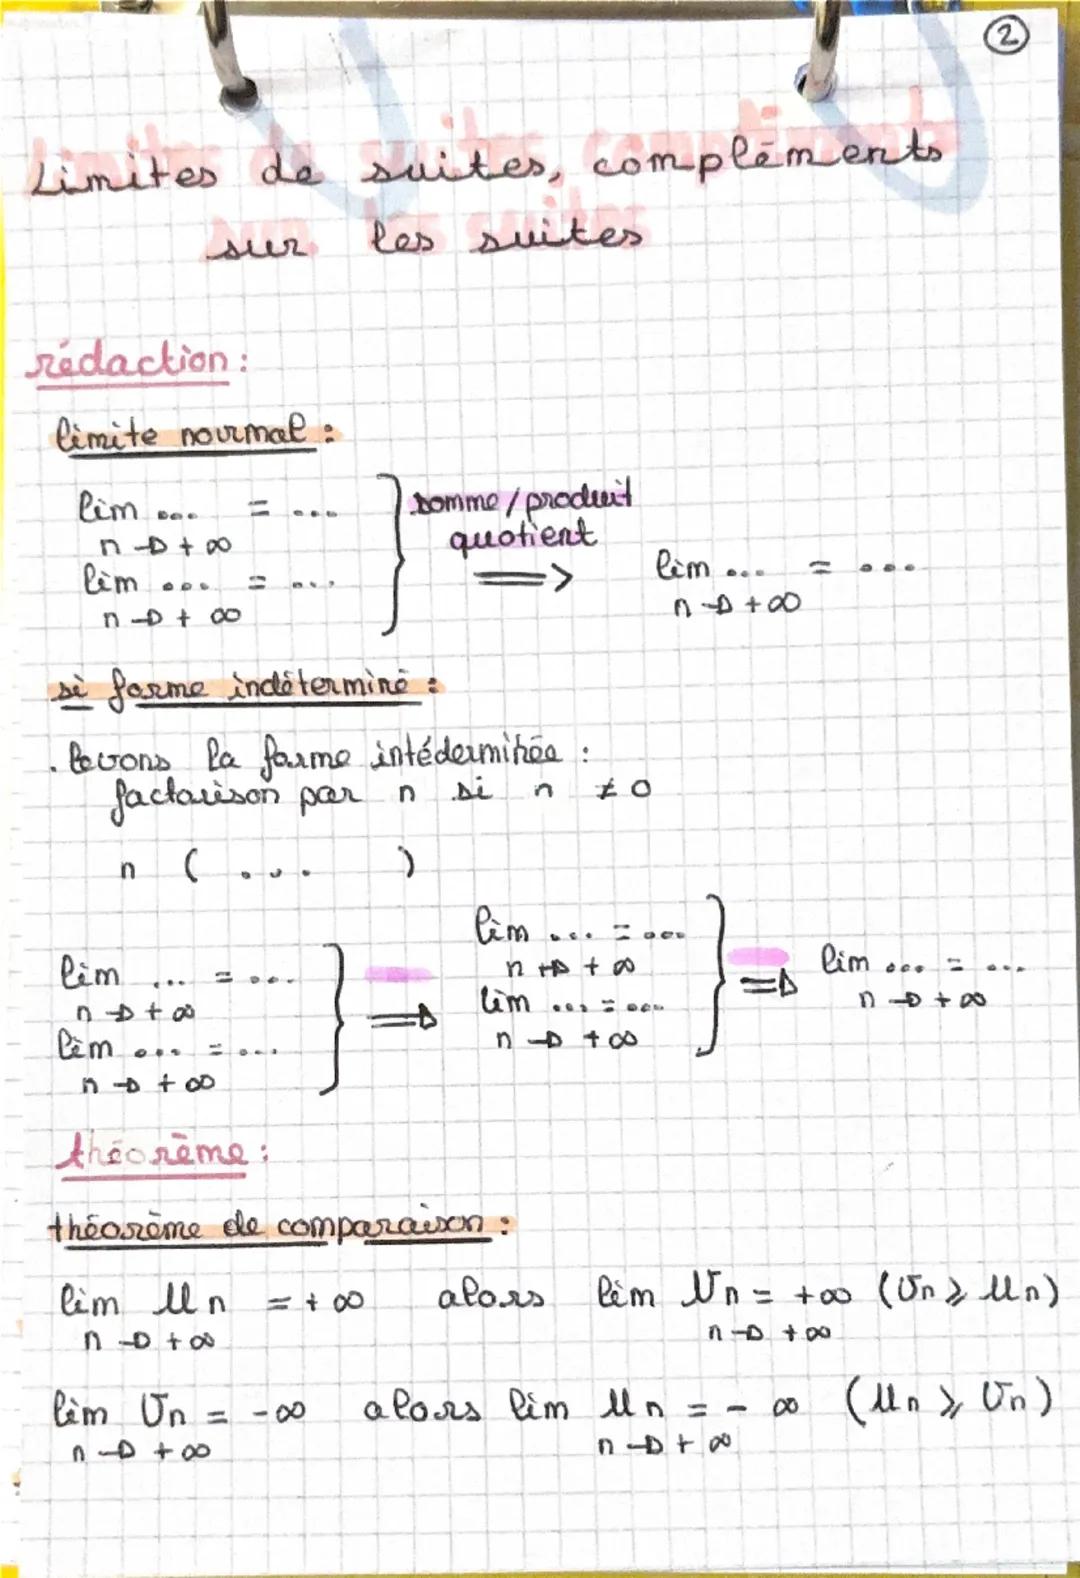 2
Limites de suites, compléments
sur les suites
rédaction :
limite nourmal :
lim ... = ...
n → +∞
lim ... = ...
n → +∞
somme / produit
quotient
⟹
lim ... = ...
n → +∞
si forme indéterminé :
. levons la forme intédermihée :
factorison par n si n ≠ 0
n ( ... )
lim ... = ...
n → +∞
lim ... = ...
n → +∞
⟹
lim ... = ...
n → +∞
lim ... = ...
n → +∞
⟹
lim ... = ...
n → +∞
théorème :
théorème de comparaison :
lim Un = +∞ alors lim Vn = +∞ (Vn ⩾ Un)
n → +∞ n → +∞
lim Vn = -∞ alors lim Un = -∞ (Un ⩾ Vn)
n → +∞ n → +∞